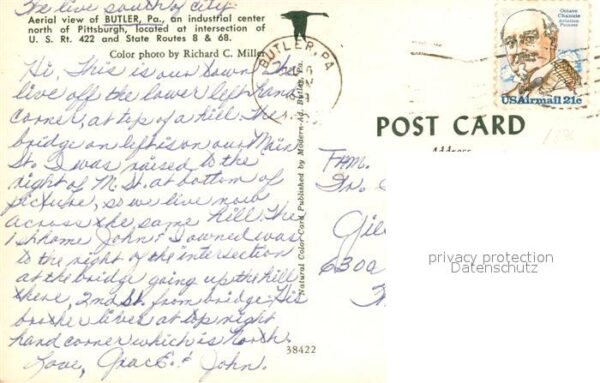 We live south of city.
Aerial view of BUTLER, Pa., an industrial center
north of Pittsburgh, located at intersection of
U. S. Rt. 422 and State Routes 8 & 68.
Color photo by Richard C. Miller
Hi, This is our town. We
live off the lower left hand
corner, at top of a hill. The
bridge on left is on our Main
St. I was raised to the
right of M. St. at bottom of
picture, so we live now
across the same hill. The
1st home John & I owned was
to the right of the intersection
at the bridge going up the hill
there, 2nd St. from bridge. His
brother lives at top right
hand corner which is North.
Love, Grace & John.
38422
Natural Color Card Published by Modern-Ad, Butler, Pa.
BUTLER, PA
Octave
Chanute
Aviation
Pioneer
USAirmail 21c
POST CARD
Address
FAM.
630
privacy protection
Datenschutz